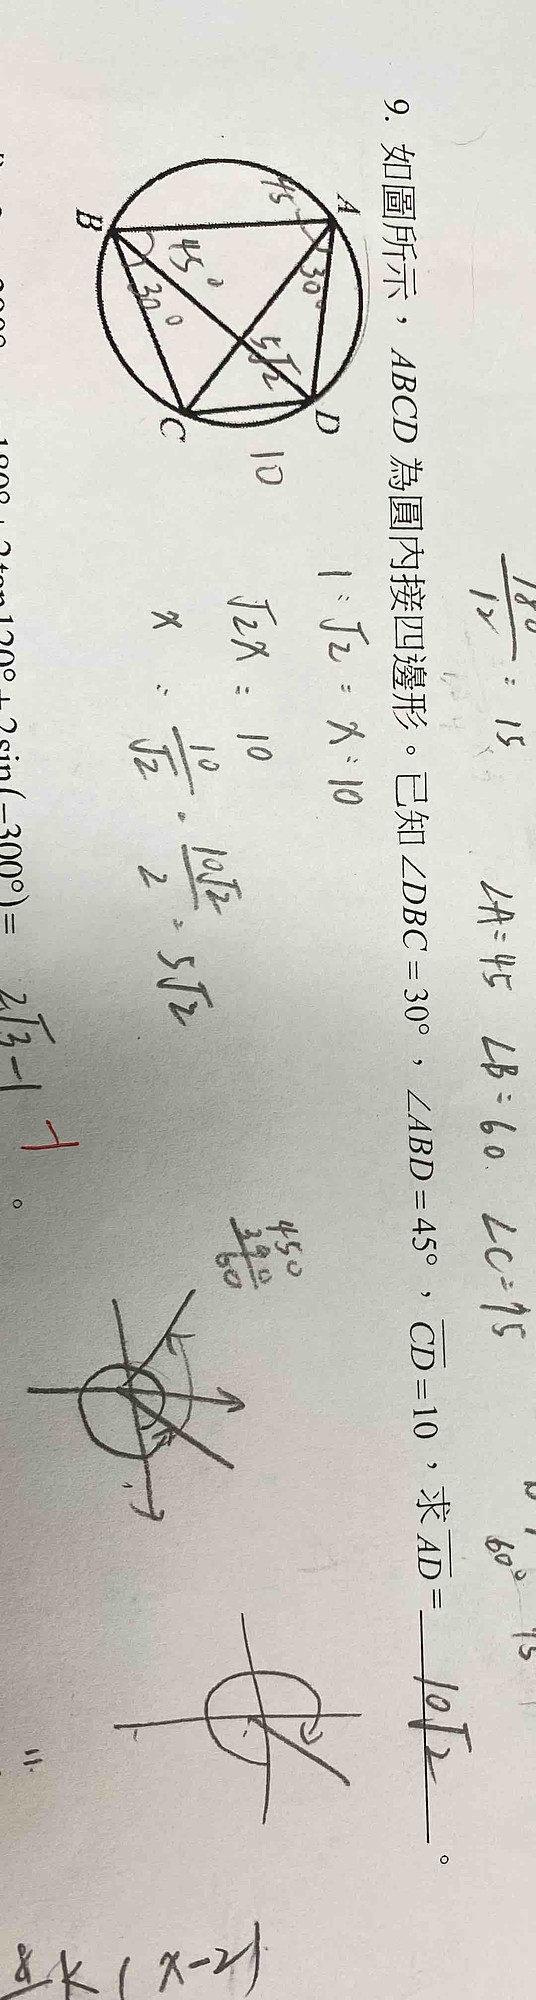 180/12 = 15
∠A=45 ∠B=60 ∠C=75
60° 75
9. 如圖所示，ABCD 為圓內接四邊形。已知∠DBC=30°，∠ABD=45°，CD=10，求AD= 10√2 。
A
45
30°
D
5√2
10
B
45°
30°
C
1:√2 = x:10
√2x = 10
x = 10/√2 = 10√2/2 = 5√2
450
390
60
180°+2tan120°+2sin(−300°)= 2√3−1 。
(x-2)